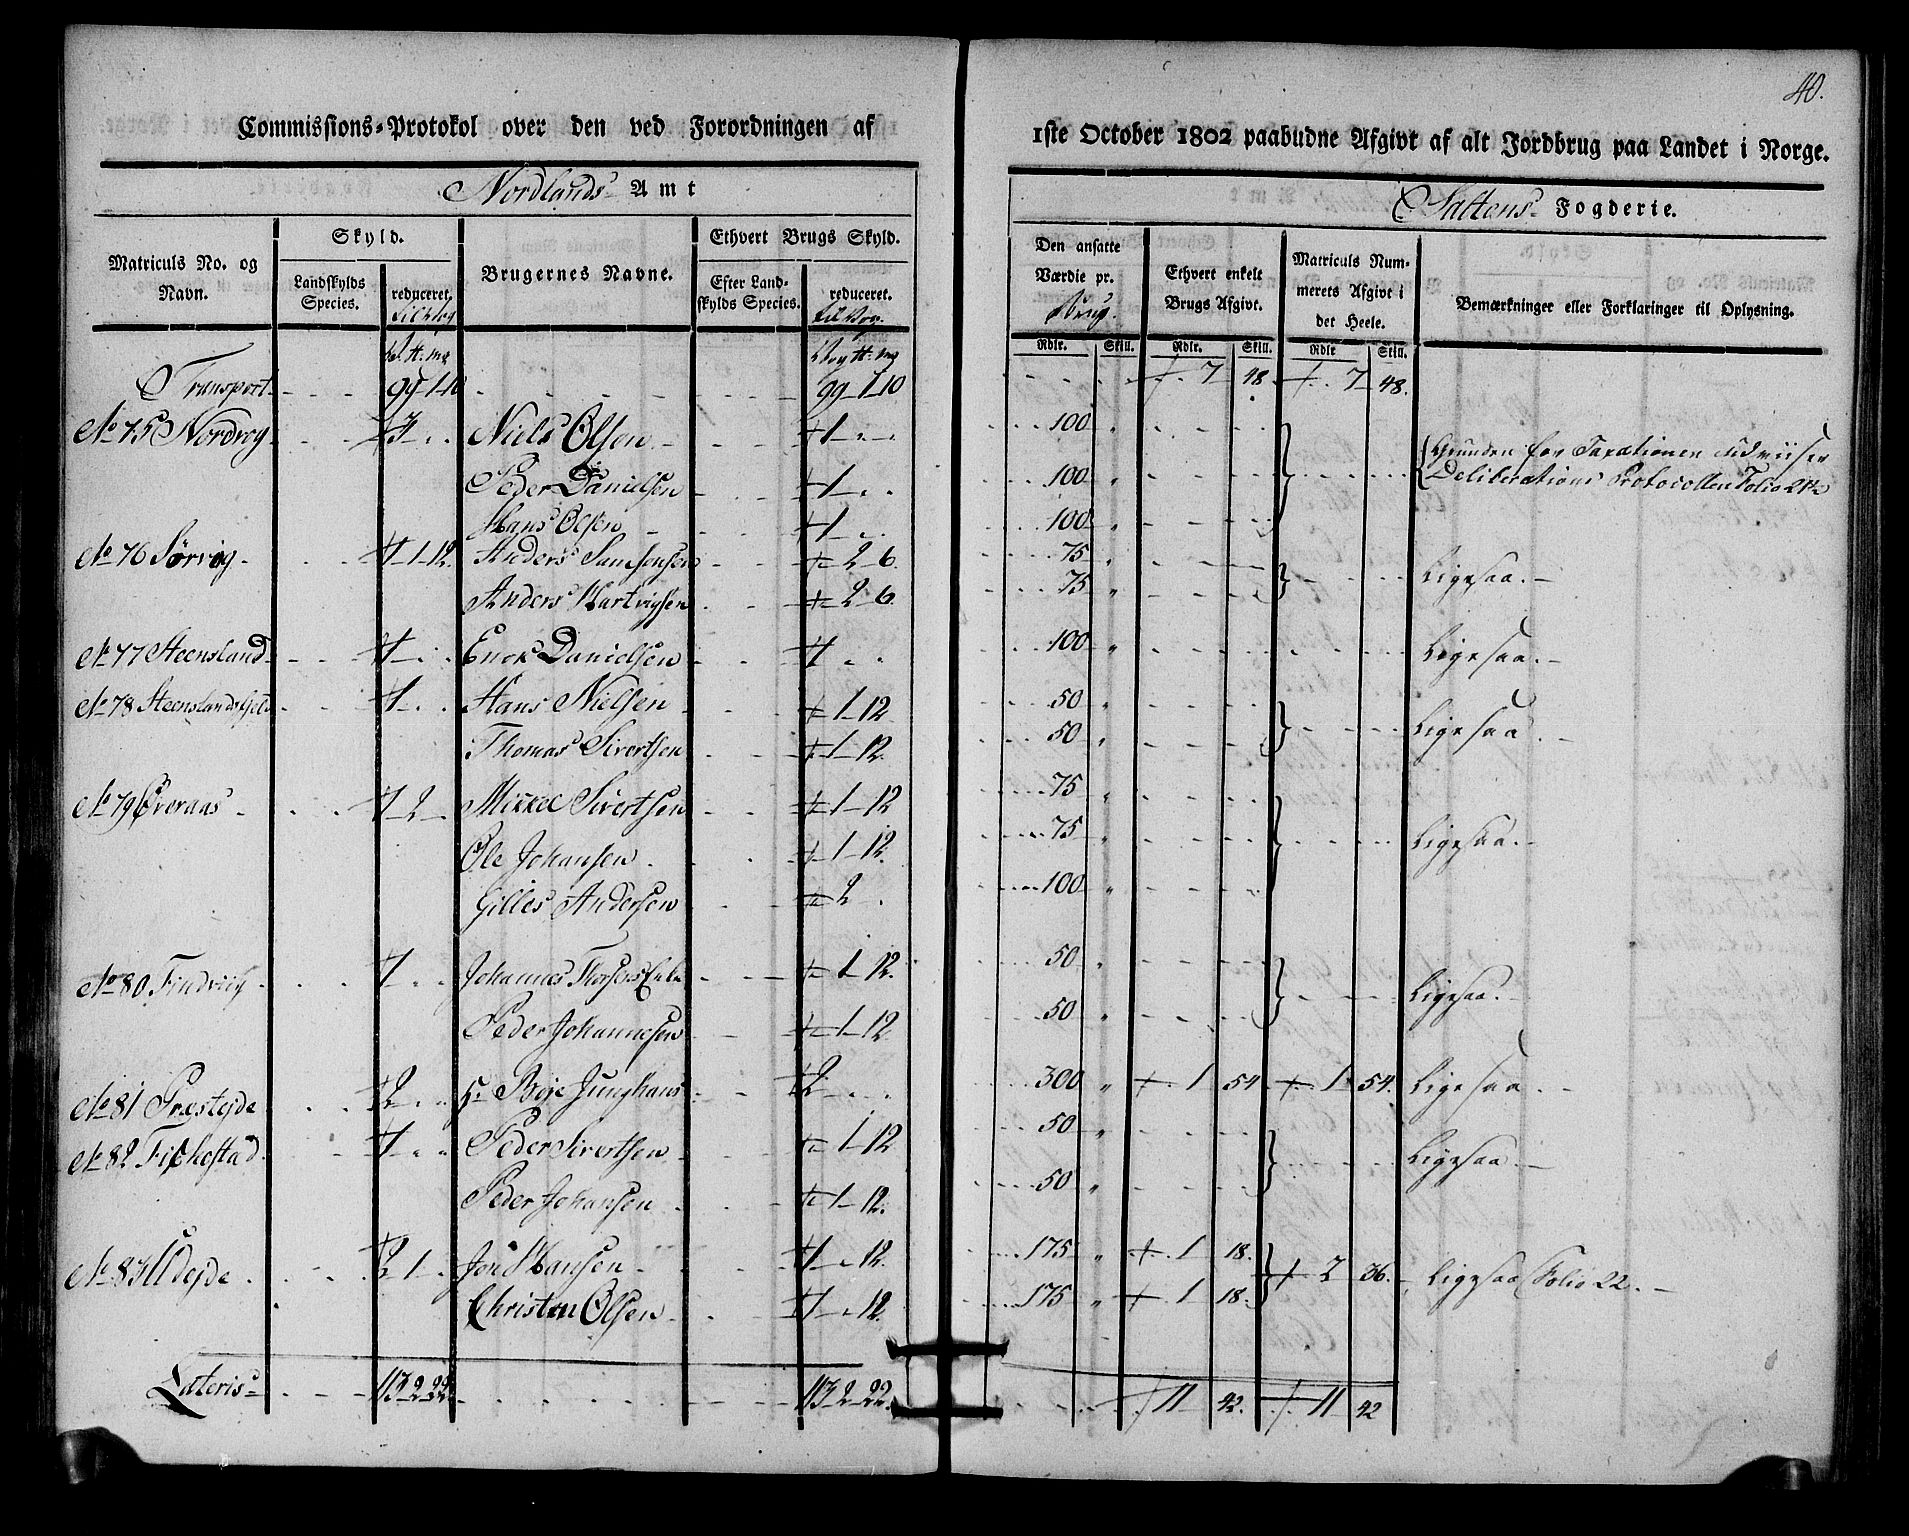 40.
Commissions-Protokol over den ved Forordningen af 1ste October 1802 paabudne Afgivt af alt Jordbrug paa Landet i Norge.
Nordlands Amt
Saltens Fogderie.
Matriculs No. og Navn.
Skyld.
Landskylds Species.
reduceret.
Brugernes Navne.
Ethvert Brugs Skyld.
Efter Landskylds Species.
reduceret.
Den ansatte Værdie pr. Brug.
Ethvert enkelt Brugs Afgivt.
Matriculs Nummerets Afgivt i det Heele.
Bemærkninger eller Forklaringer til Oplysning.
Rdlr. Skill. Rdlr. Skill. Rdlr Skill.
Transport 99-1-10 99-1-10 7 48 7 48.
No 75 Nordvog 3 Niels Olsen 1 100 Grunden for Taxationen udviiser
Peder Danielsen 1 100 Deliberations Protocollen Folio 21
Hans Olsen 1 100
No 76 Sørvig 1-12. Anders Samsonsen 2-6. 75 Ligesaa.
Anders Hartvigsen 2-6. 75
No 77 Steensland 1 Enok Danielsen 1 100 Ligesaa.
No 78 Steenslandsfjeld 1 Hans Nielsen 1-12 50 Ligesaa.
Thomas Sivertsen 1-12. 50
No 79 Øveraas 1-2 Mikkel Sivertsen 1-12 75 Ligesaa.
Ole Johansen 1-12. 75
Gilles Andersen 2 100
No 80 Findviig 1 Johannes Thorsens Enke 1-12. 50 Ligesaa.
Peder Johannesen 1-12. 50
No 81 Præstejde 2 Boje Junghans 2 300 1 54 1 54. Ligesaa.
No 82 Fiskestad 1 Peder Sivertsen 1-12 50 Ligesaa.
Peder Johansen 1-12. 50
No 83 Udejde 2 1 Jon Hansen 1 12. 175 1 18. 2 36. Ligesaa Folio 22.
Christen Olsen 1 12. 175 1 18.
Lateris 113-2-22. 113-2-22. 11 42. 11 42